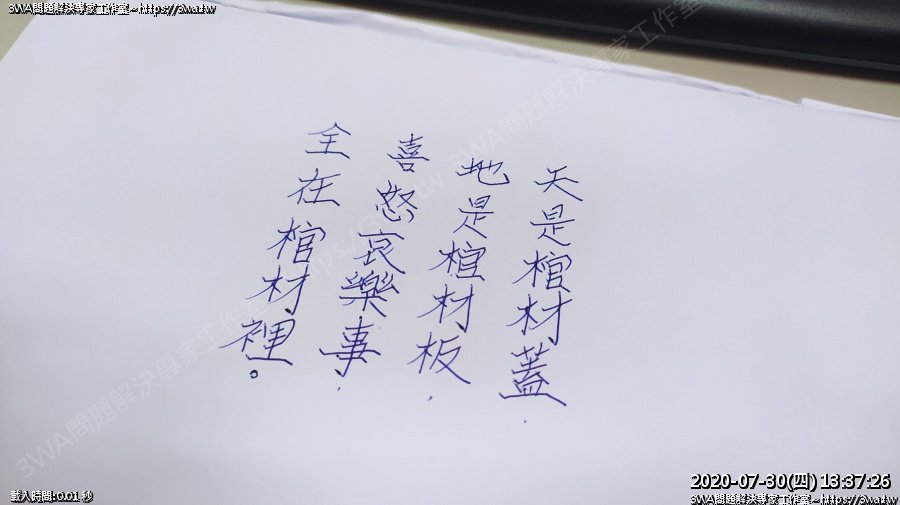 3WA問題解決專家工作室~https://3wa.tw
天是棺材蓋,
地是棺材板,
喜怒哀樂事,
全在棺材裡。
3WA問題解決專家工作室 https://3wa.tw 3WA問題解決專家工作室
載入時間:0.01 秒
2020-07-30(四) 13:37:26
3WA問題解決專家工作室~https://3wa.tw